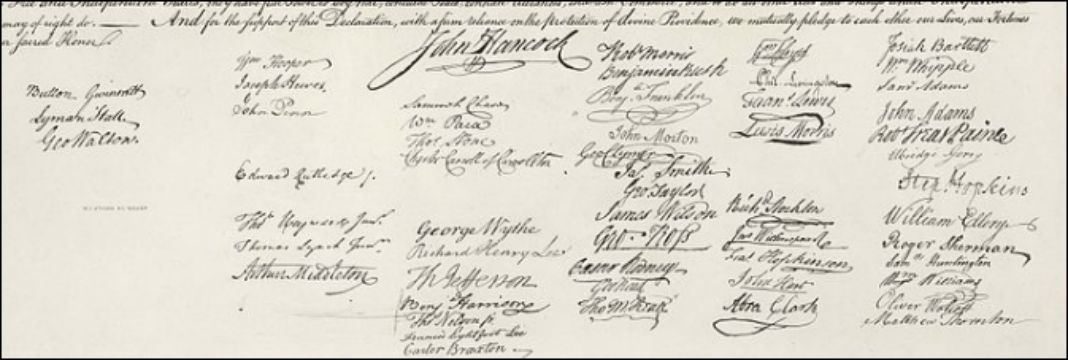 And for the support of this Declaration, with a firm reliance on the protection of divine Providence, we mutually pledge to each other our Lives, our Fortunes
sacred Honor.
Button Gwinnett
Lyman Hall
Geo Walton
Wm Hooper
Joseph Hewes,
John Penn
Edward Rutledge
Thos Heyward Junr.
Thomas Lynch Junr.
Arthur Middleton
John Hancock
Samuel Chase
Wm Paca
Thos Stone
Charles Carroll of Carrollton
George Wythe
Richard Henry Lee
Th Jefferson
Benj Harrison
Thos Nelson jr.
Francis Lightfoot Lee
Carter Braxton
Robt Morris
Benjamin Rush
Benj. Franklin
John Morton
Geo Clymer
Jas. Smith
Geo. Taylor
James Wilson
Geo. Ross
Caesar Rodney
Geo Read
Tho M:Kean
Wm Floyd
Phil. Livingston
Frans. Lewis
Lewis Morris
Richd. Stockton
Jno Witherspoon
Fras. Hopkinson
John Hart
Abra Clark
Josiah Bartlett
Wm Whipple
Saml Adams
John Adams
Robt Treat Paine
Elbridge Gerry
Step. Hopkins
William Ellery
Roger Sherman
Saml Huntington
Wm Williams
Oliver Wolcott
Matthew Thornton